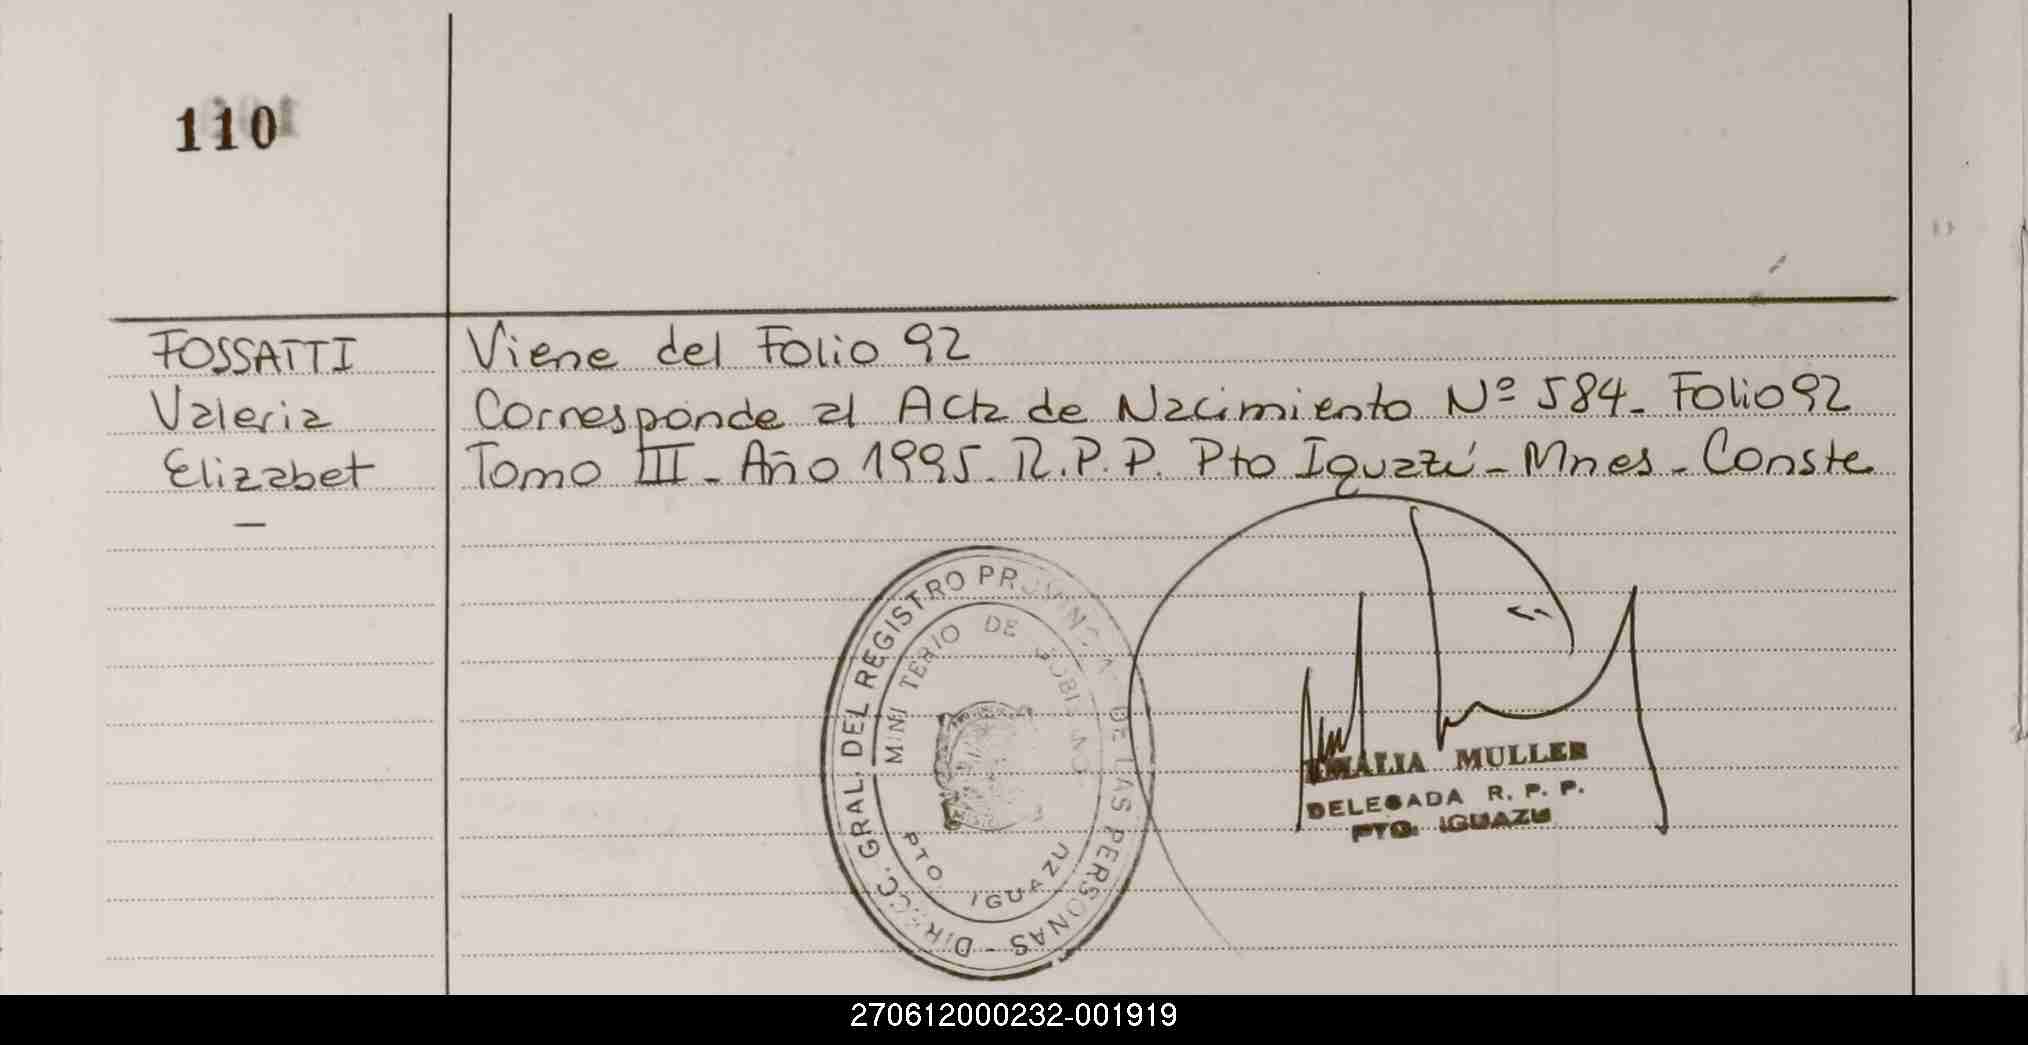 110
FOSSATTI
Valeria
Elizabet
—
Viene del Folio 92
Corresponde al Acta de Nacimiento Nº 584_ Folio 92
Tomo III_ Año 1995_ R.P.P. Pto Iguazú_ Mnes_ Conste
DIRECC. GRAL. DEL REGISTRO PROVINCIAL DE LAS PERSONAS -
MINISTERIO DE GOBIERNO
PTO IGUAZU
AMALIA MULLER
DELEGADA R. P. P.
PTO. IGUAZU
270612000232-001919